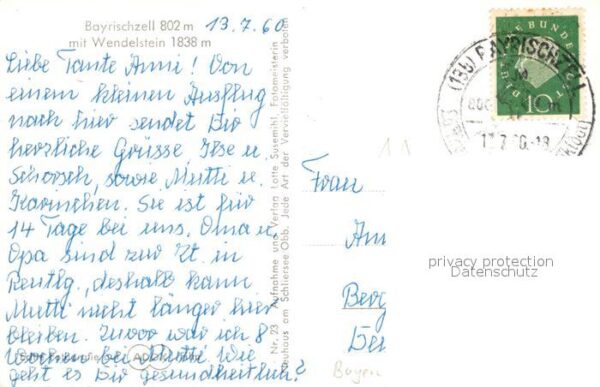 Bayrischzell 802 m
mit Wendelstein 1838 m
13.7.60
Liebe Tante Anni! Von
einem kleinen Ausflug
nach hier sendet Dir
herzliche Grüsse, Ilse u.
Schorsch, sowie Mutti u.
Karinchen. Sie ist für
14 Tage bei uns, Oma u.
Opa sind zur Zt. in
Reutlg., deshalb kann
Mutti nicht länger hier
bleiben. Zuvor war ich 8
Wochen bei Mutti. Wie
geht es Dir gesundheitlich?
Nr. 23 Aufnahme und Verlag Lotte Susemihl, Fotomeisterin
Neuhaus am Schliersee Obb. Jede Art der Vervielfältigung verboten
DEUTSCHE BUNDESPOST
10
(13b) BAYRISCHZELL
11
Frau
Ann
Berg
Bayern
privacy protection
Datenschutz